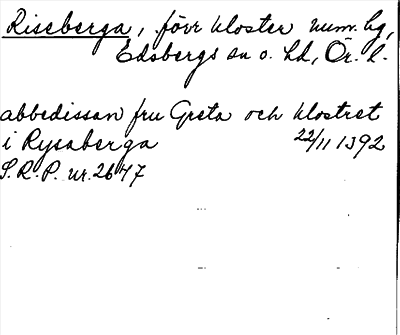 Riseberga, förr kloster num. hg,
Edsbergs sn o. hd, Ör. l.
abbedissan fru Greta och klostret
i Rysaberga 22/11 1392
S.R.P. nr. 2647